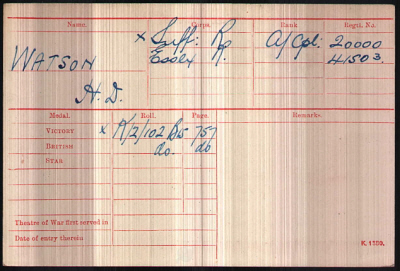 Name. Corps. Rank Regtl. No.
x Suff: R. A/Cpl: 20000
WATSON Essex R. 41503
H. D.
Medal. Roll. Page. Remarks.
VICTORY x K/2/102 B15 757
BRITISH do. do
STAR
Theatre of War first served in
Date of entry therein
K. 1380.